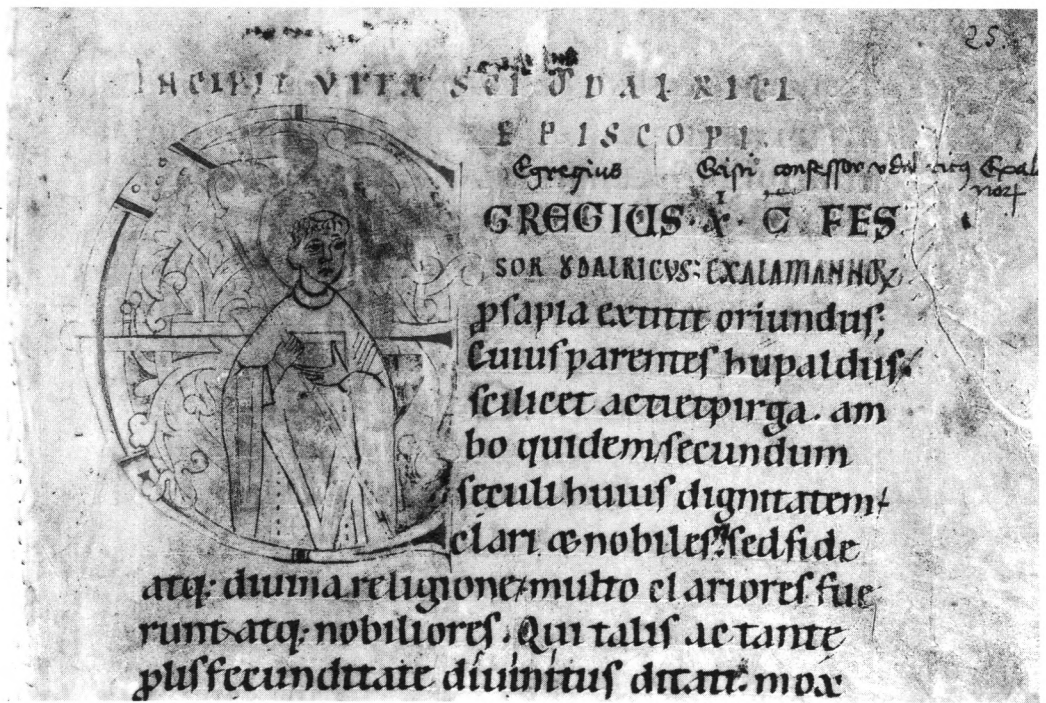 25.
INCIPIT VITA SCI ȢDALRICI
EPISCOPI
Egregius confessor Exal
EGREGIUS· X̅ı · C̅ FES
SOR ȢDALRICVS: EXALAMANNOꝜ
ꝓsapia extitit oriundus;
Cuius parentes hupaldus
scilicet ac tietpirga. am
bo quidem secundum
seculi huius dignitatem
clari & nobiles. sed fide
atq; diuina religione multo clariores fue
runt atq; nobiliores. Qui talis ac tante
ꝓlis fecunditate diuinitus ditati. mox